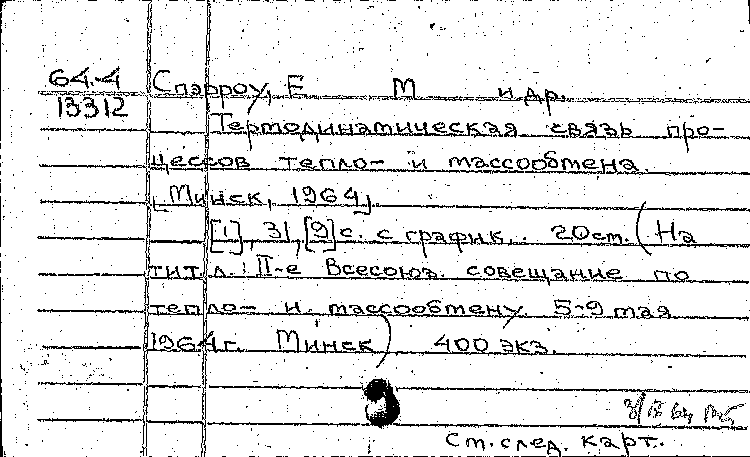 64.4
13312
Спэрроу, Е М и др.
Термодинамическая связь про-
цессов тепло- и массообмена.
[Минск, 1964].
[1], 31, [9] с. с график. 20см. (На
тит. л.: II-е Всесоюз. совещание по
тепло- и массообмену. 5-9 мая
1964г. Минск). 400 экз.
См. след. карт.